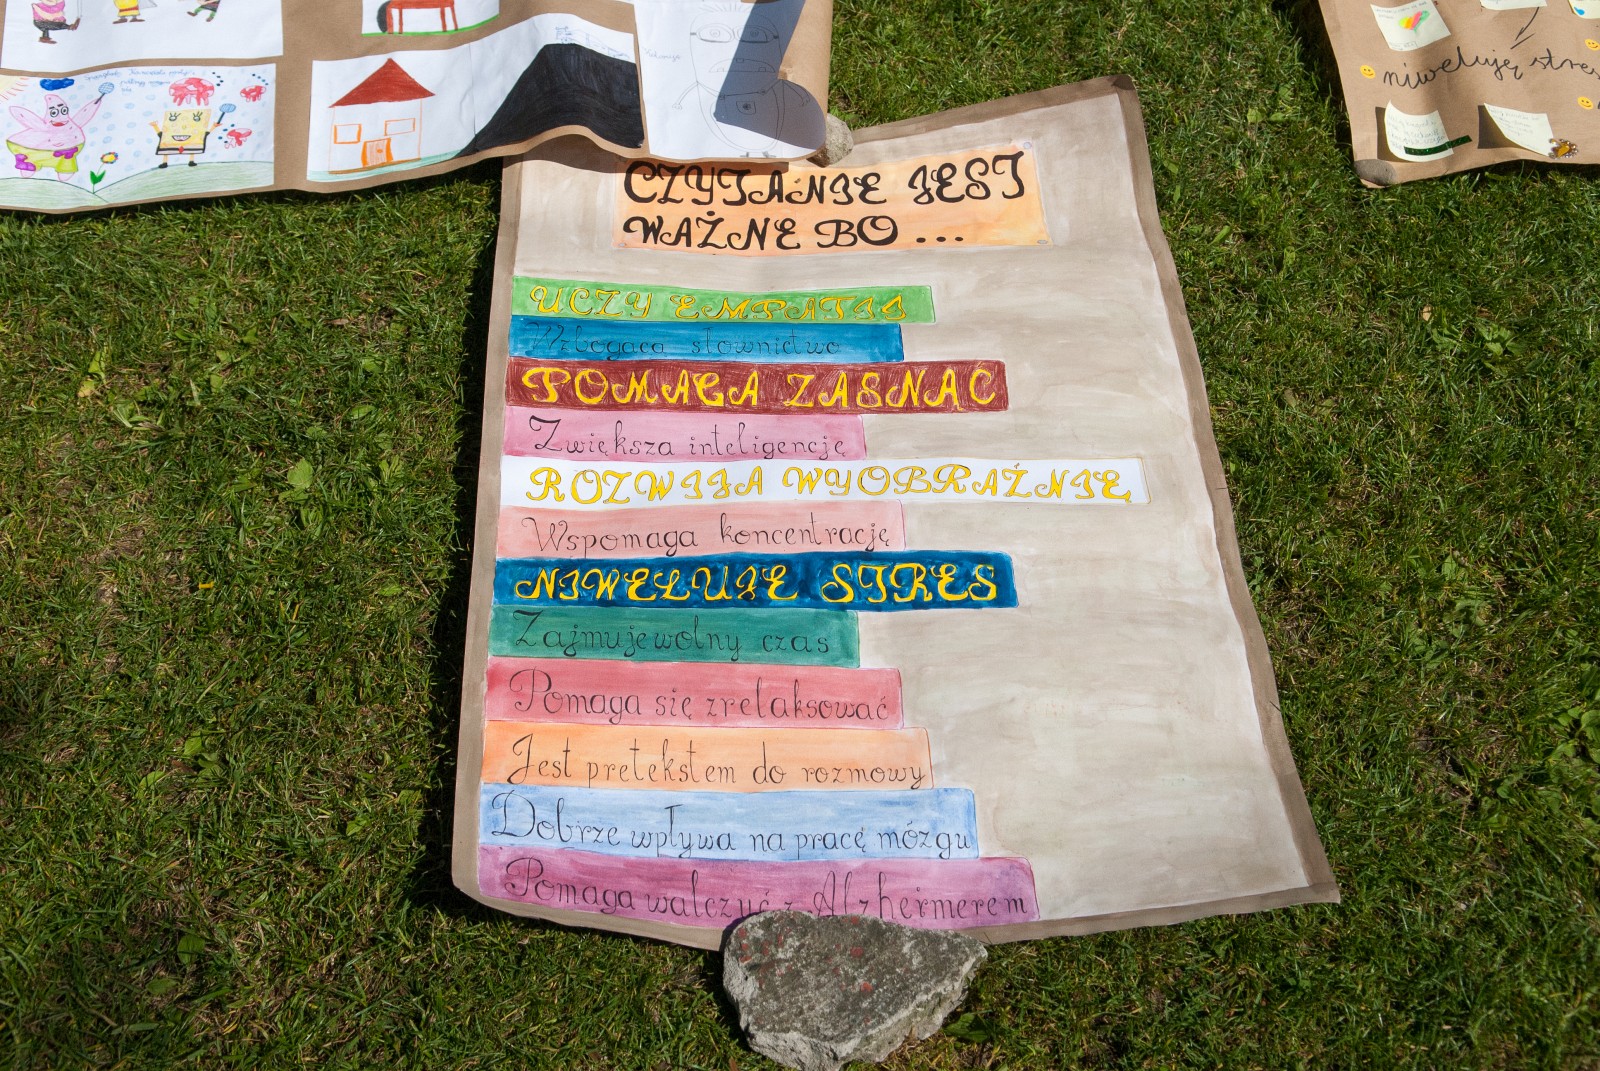 CZYTANIE JEST
WAŻNE BO ...
UCZY EMPATII
Wzbogaca słownictwo
POMAGA ZASNĄĆ
Zwiększa inteligencję
ROZWIJA WYOBRAŹNIĘ
Wspomaga koncentrację
NIWELUJE STRES
Zajmuje wolny czas
Pomaga się zrelaksować
Jest pretekstem do rozmowy
Dobrze wpływa na pracę mózgu
Pomaga walczyć z Alzheimerem
niwelują stres